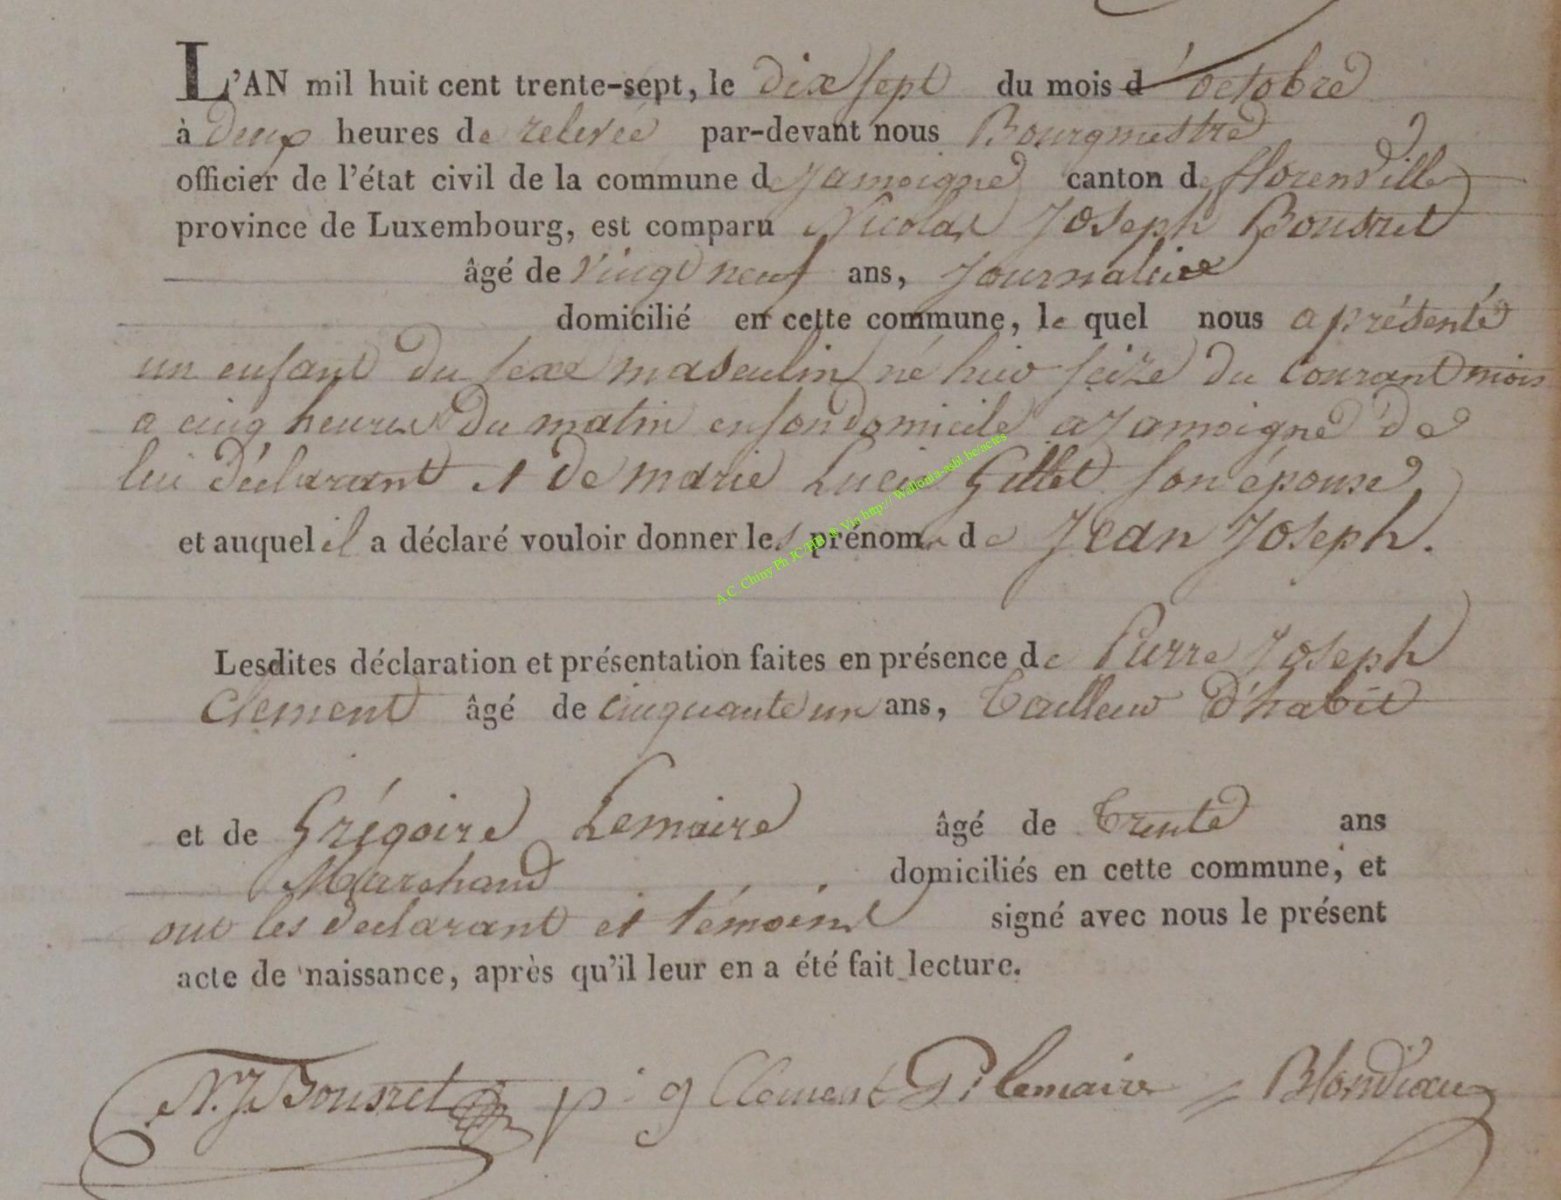 L'AN mil huit cent trente-sept, le dix sept du mois d'octobre
à deux heures de relevée par-devant nous Bourgmestre
officier de l'état civil de la commune de Jamoigne canton de florenville
province de Luxembourg, est comparu Nicolas Joseph Bousret
âgé de vingt neuf ans, Journalier
domicilié en cette commune, le quel nous a présenté
un enfant du sexe masculin né hier seize du courant mois
a cinq heures du matin en son domicile a Jamoigne de
lui déclarant et de marie Lucie Gillet son épouse
et auquel il a déclaré vouloir donner les prénoms de Jean Joseph.
A C Chiny Ph JC HB & Via http://Wallonia-asbl.be/actes
Lesdites déclaration et présentation faites en présence de Pierre Joseph
Clement âgé de cinquante un ans, Tailleur d'habit
et de Grégoire Lemaire âgé de trente ans
Marchand domiciliés en cette commune, et
ont les déclarant et témoins signé avec nous le présent
acte de naissance, après qu'il leur en a été fait lecture.
N. J. Bousret p. j Clement G. lemaire Blondiau